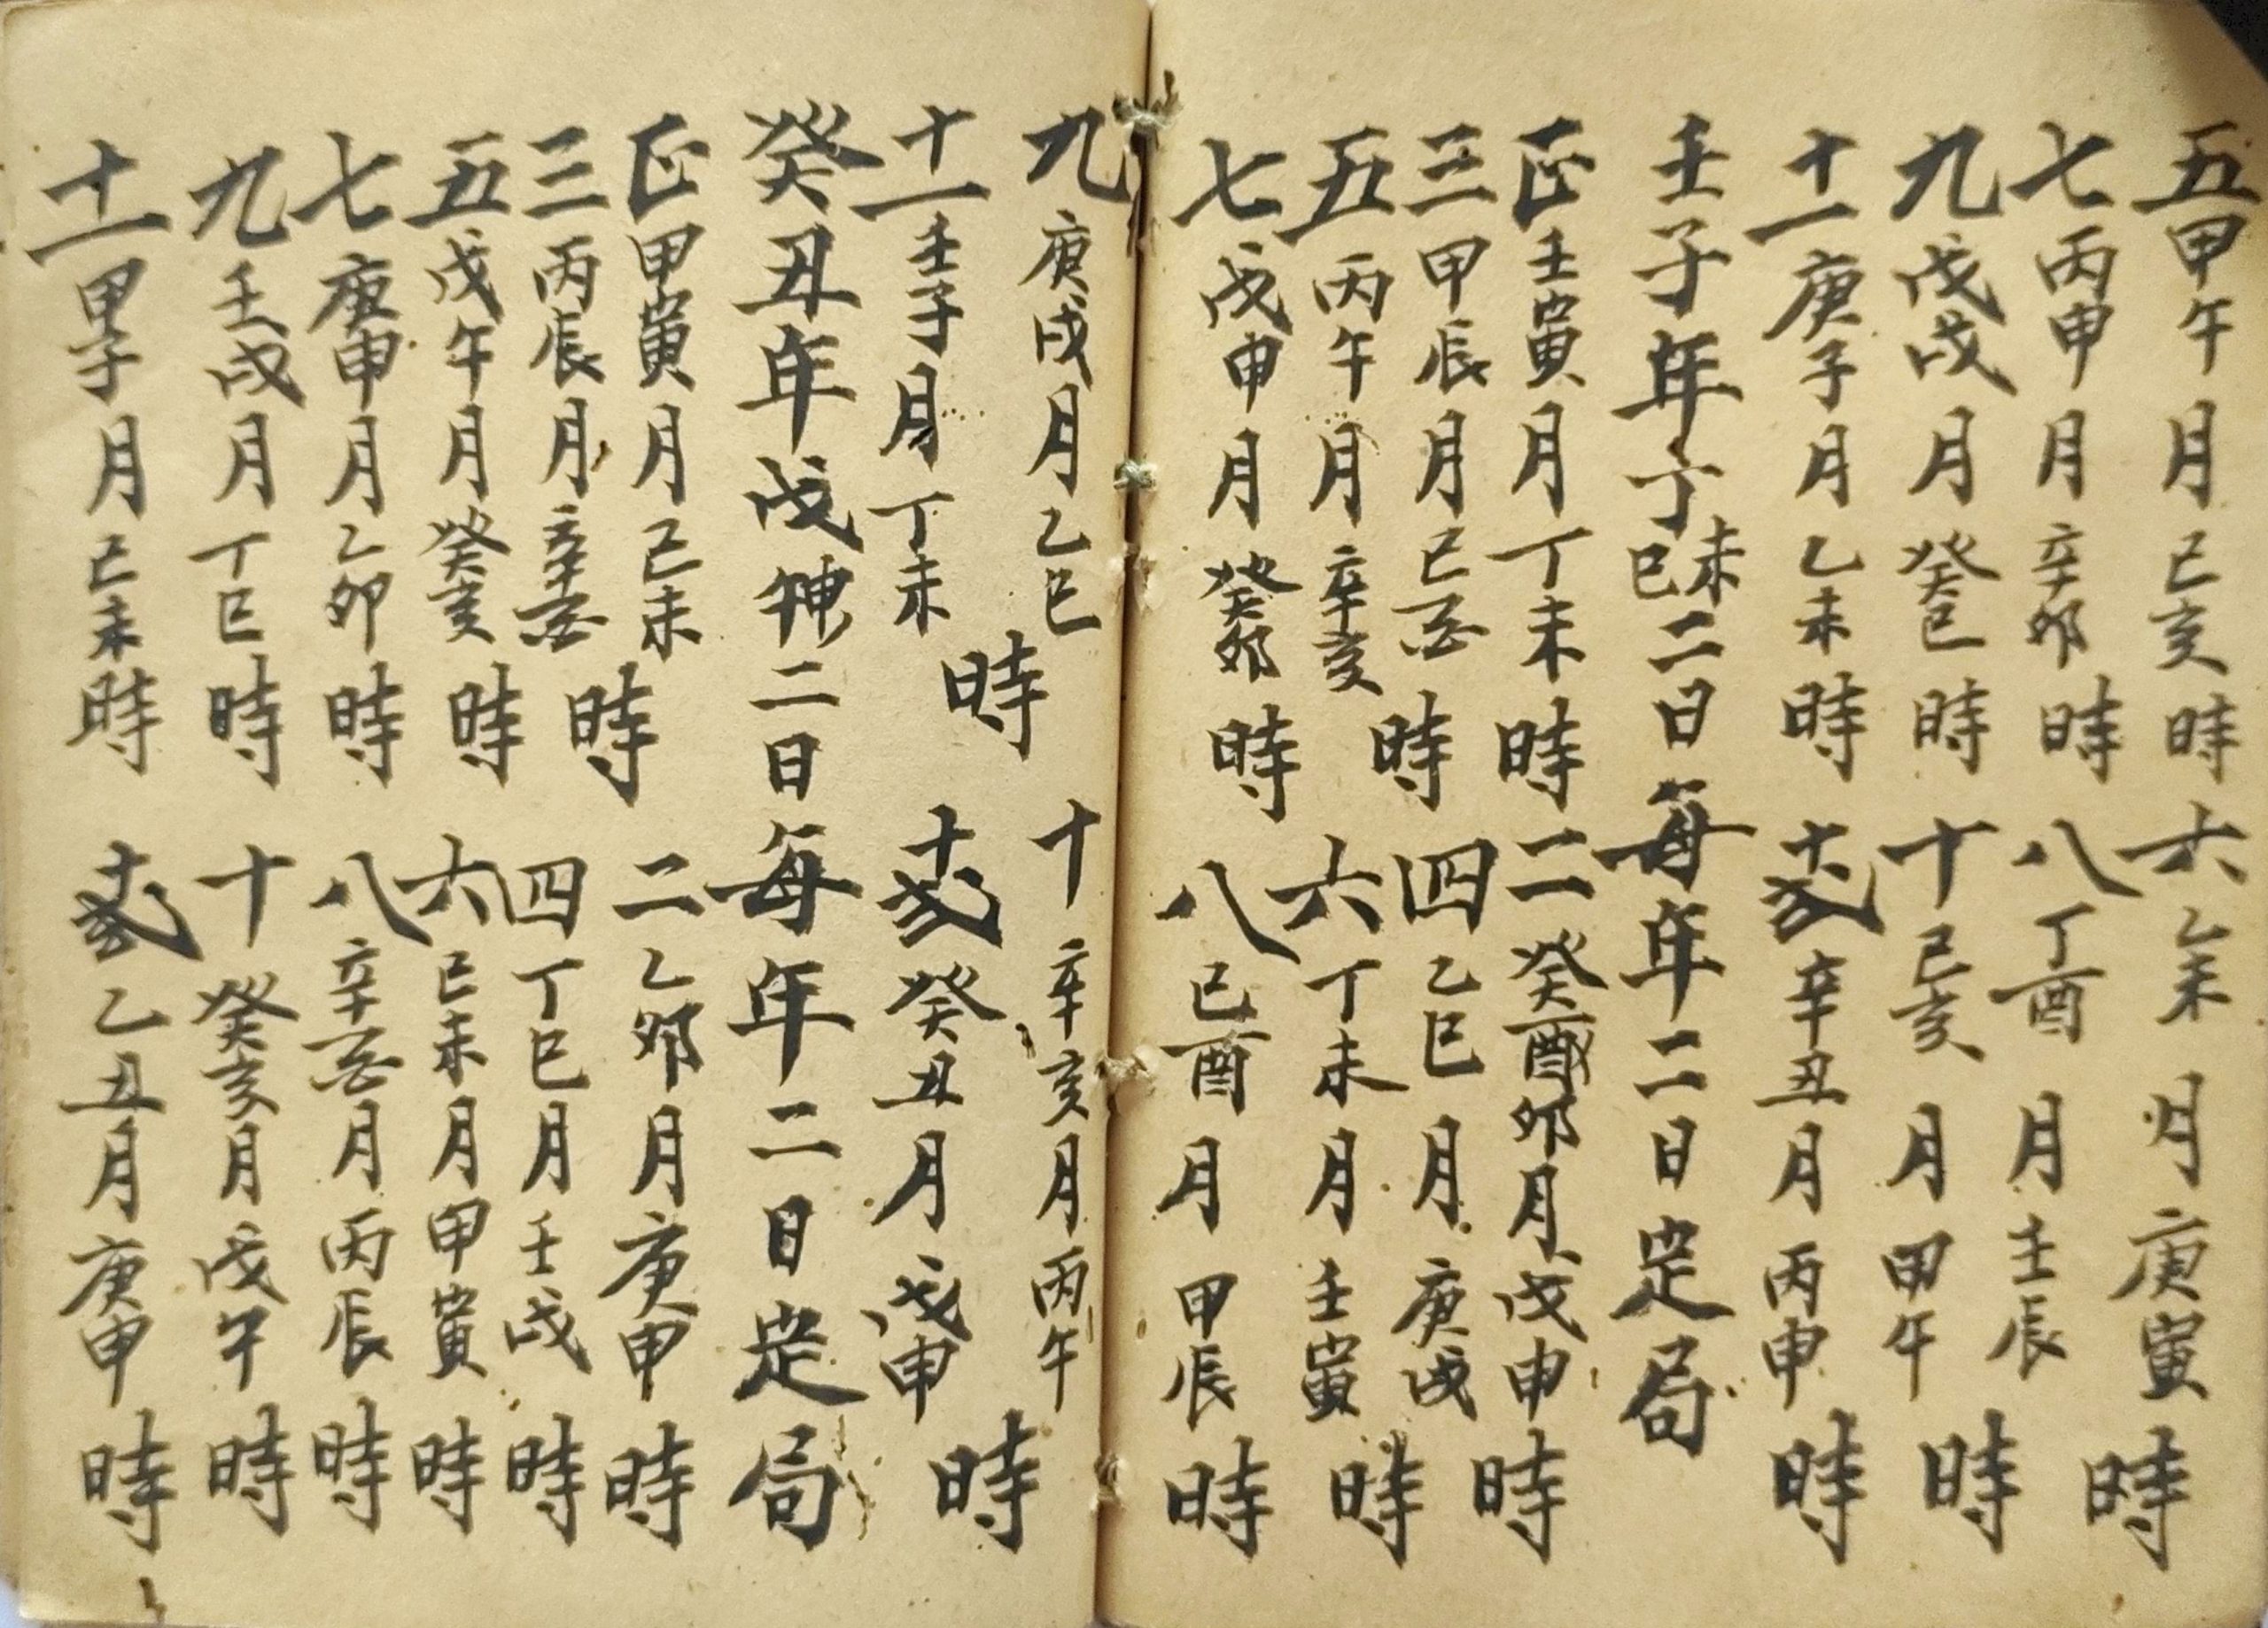 五甲午月己亥時 六乙未月庚寅時
七丙申月辛卯時 八丁酉月壬辰
九戊戌月癸巳時 十己亥月甲午時
十一庚子月乙未時 十弍辛丑月丙申時
壬子年丁未巳二日每年二日定局
正壬寅月丁未時 二癸酉卯月戊申時
三甲辰月己酉時 四乙巳月庚戌
五丙午月辛亥 六丁未月壬寅時
七戊申月癸卯時 八己酉月甲辰時
九庚戌月乙巳 十辛亥月丙午
十一壬子月丁未時 十弍癸丑月戊申時
癸丑年戊午申二日每年二日定局
正甲寅月己未 二乙卯月庚申時
三丙辰月辛酉時 四丁巳月壬戌時
五戊午月癸亥時 六己未月甲寅時
七庚申月乙卯時 八辛酉月丙辰時
九壬戌月丁巳時 十癸亥月戊午時
十一甲子月己未時 十弍乙丑月庚申時